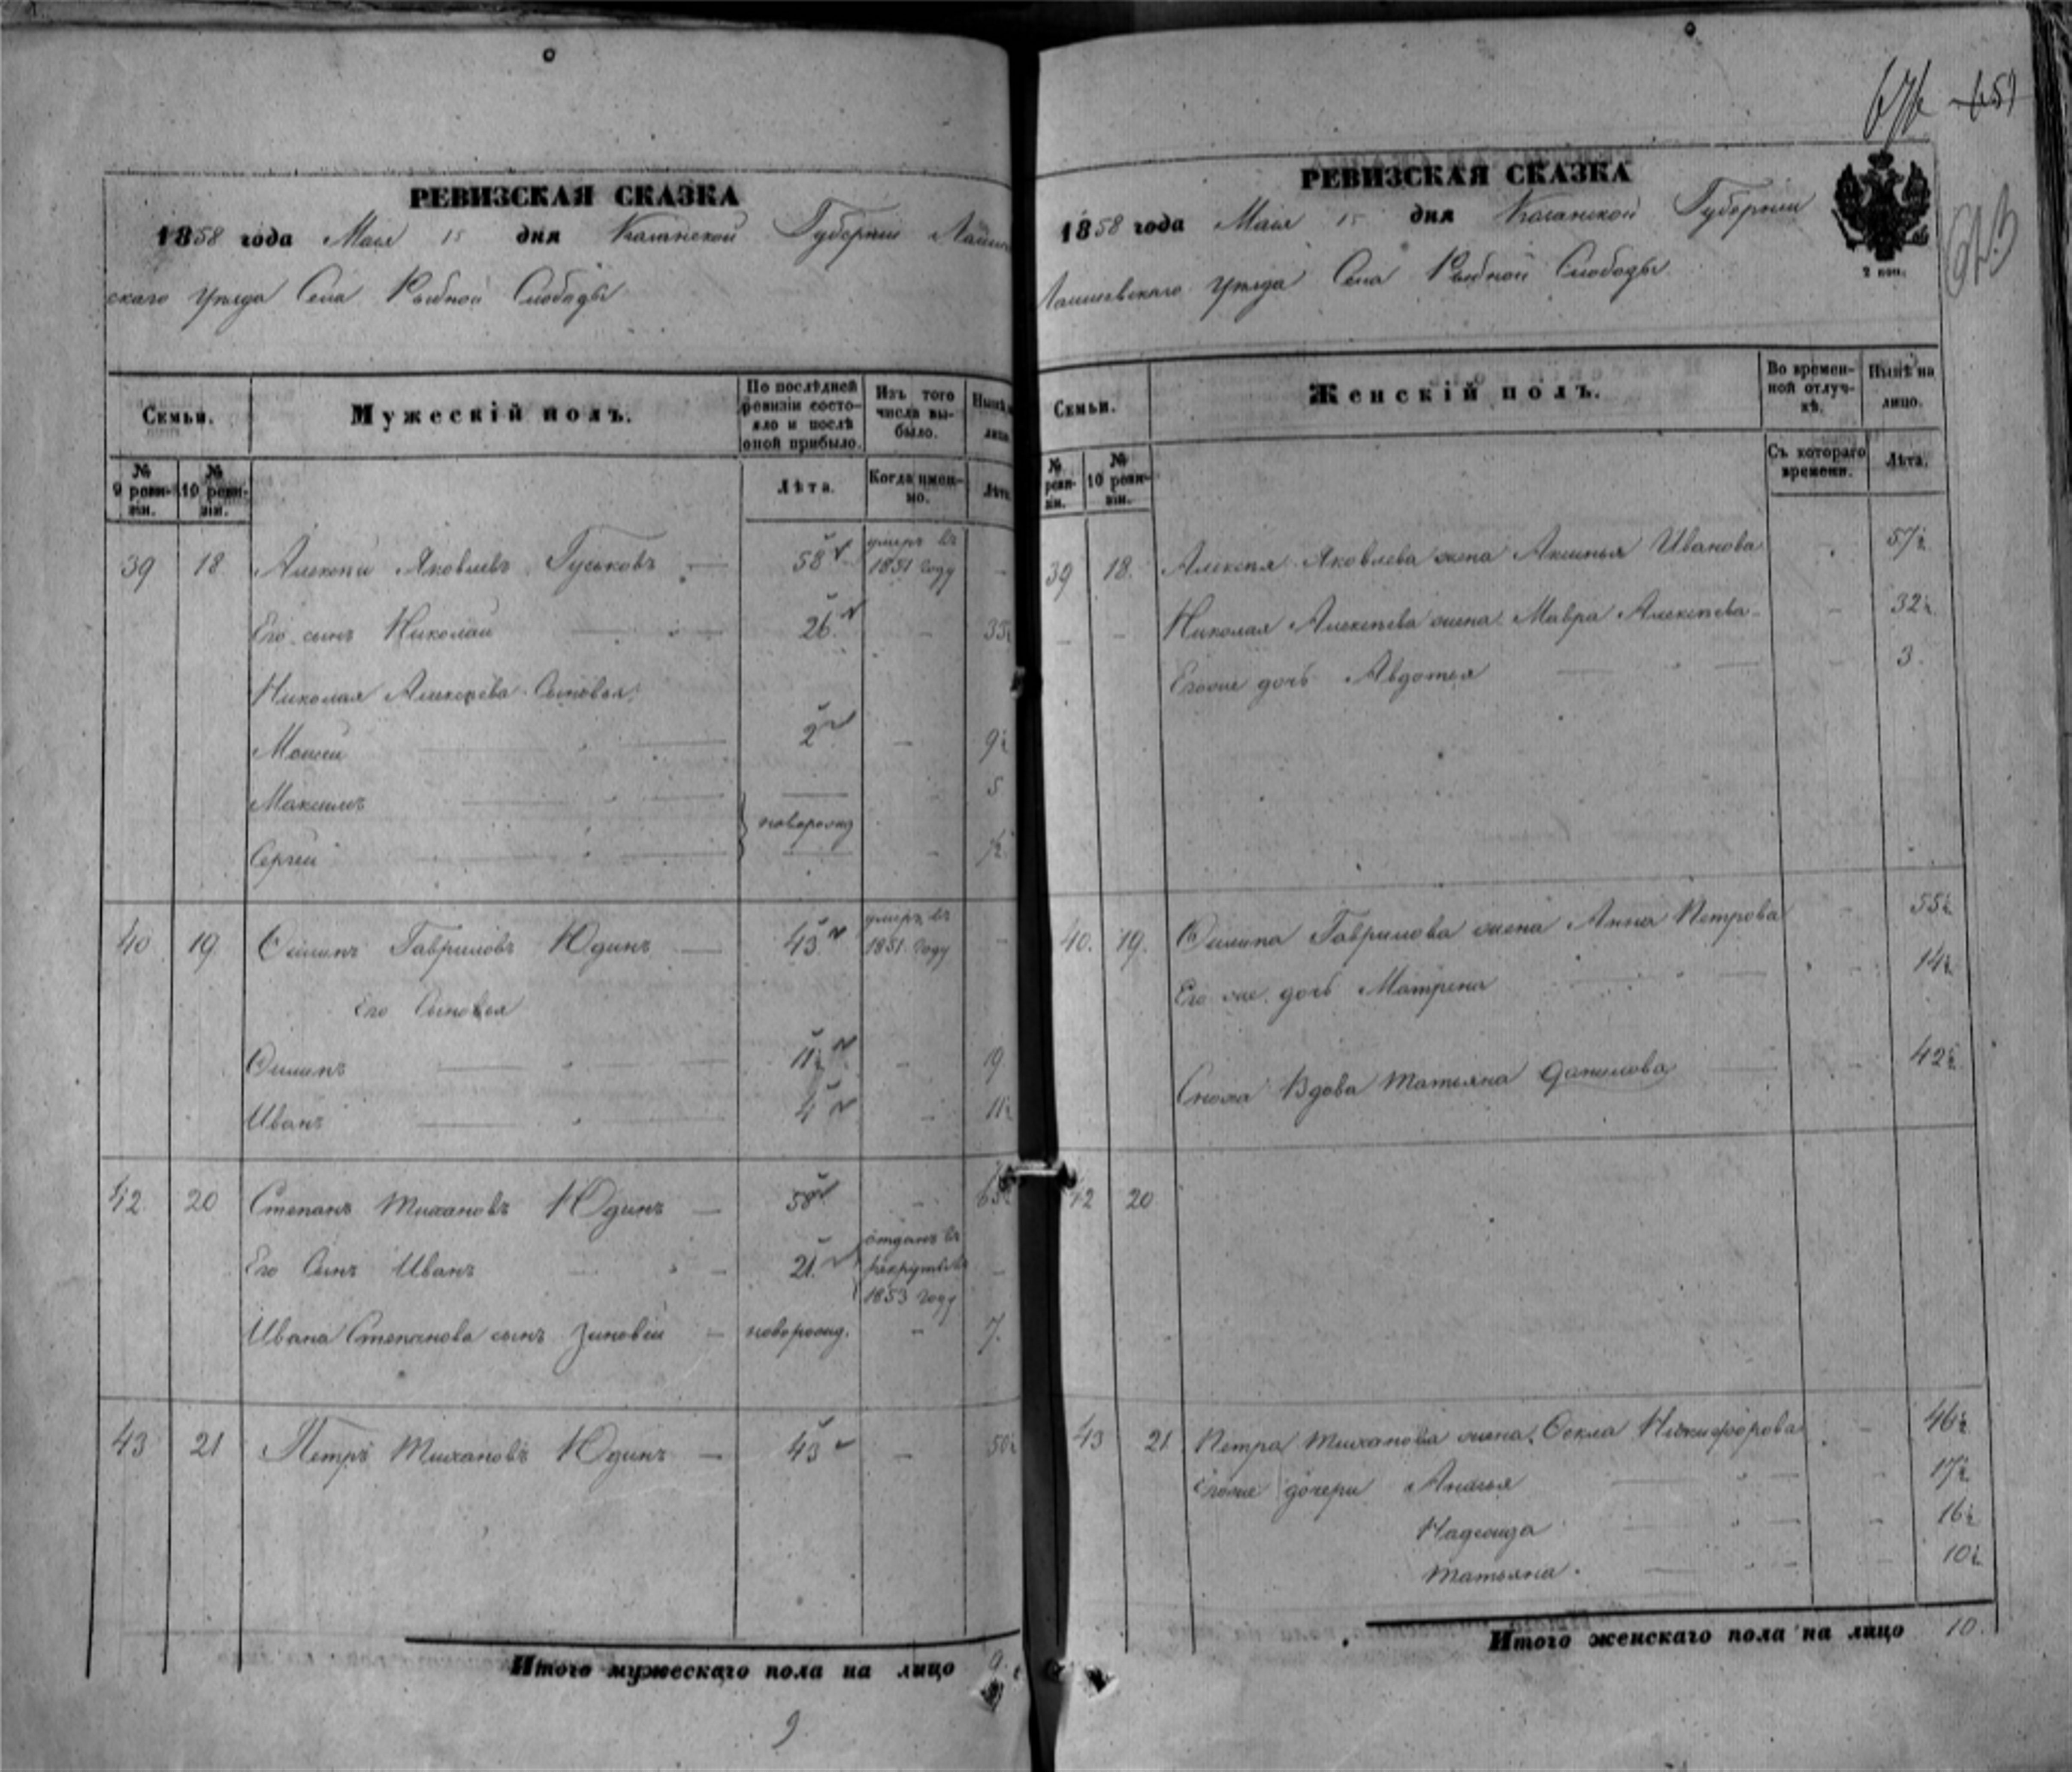 РЕВИЗСКАЯ СКАЗКА
1858 года Маія 15 дня Казанской Губерніи Лаише
скаго уѣзда Села Рыбной Слободы
Семьи.
Мужескій полъ.
По послѣдней ревизіи состояло и послѣ оной прибыло.
Изъ того числа выбыло.
Нынѣ
лицо
№ 9 ревизіи.
№ 10 ревизіи.
Лѣта.
Когда именно.
Лѣта
39 18 Алексѣй Яковлевъ Гуськовъ — 58 умеръ въ 1851 году —
Его сынъ Николай 26 — 33½
Николая Алексѣева Сыновья:
Моисей 2 — 9½
Максимъ — 5
новорожд
Сергѣй — ½
40 19 Филипъ Гавриловъ Юдинъ — 43 умеръ въ 1851 году —
Его Сыновья
Филипъ 11½ — 19
Иванъ 4 — 11½
42 20 Степанъ Тихановъ Юдинъ — 58 — 65½
Его Сынъ Иванъ — 21 отданъ въ рекруты въ 1853 году —
Ивана Степанова сынъ Зиновей — новорожд. — 7.
43 21 Петръ Тихановъ Юдинъ — 43 — 50½
Итого мужескаго пола на лицо 9
9
РЕВИЗСКАЯ СКАЗКА
1858 года Маія 15 дня Казанской Губерніи
Лаишевскаго уѣзда Села Рыбной Слободы
2 коп.
Семьи.
Женскій полъ.
Во временной отлучкѣ.
Нынѣ на лицо.
№ ревизіи.
№ 10 ревизіи.
Съ котораго времени.
Лѣта.
39 18. Алексѣя Яковлева жена Аксинья Иванова 57½
— — Николая Алексѣева жена Мавра Алексѣева — 32½
Егоже дочь Авдотья — 3.
40. 19. Филипа Гаврилова жена Анна Петрова — 55½
Его же дочь Матрена — 14½
Сноха Вдова Татьяна Данилова — 42½
42 20
43 21 Петра Тиханова жена Фекла Никифорова — 46½
Егоже дочери Анисья — 17½
Надежда — 16½
Татьяна. — 10½
Итого женскаго пола на лицо 10.